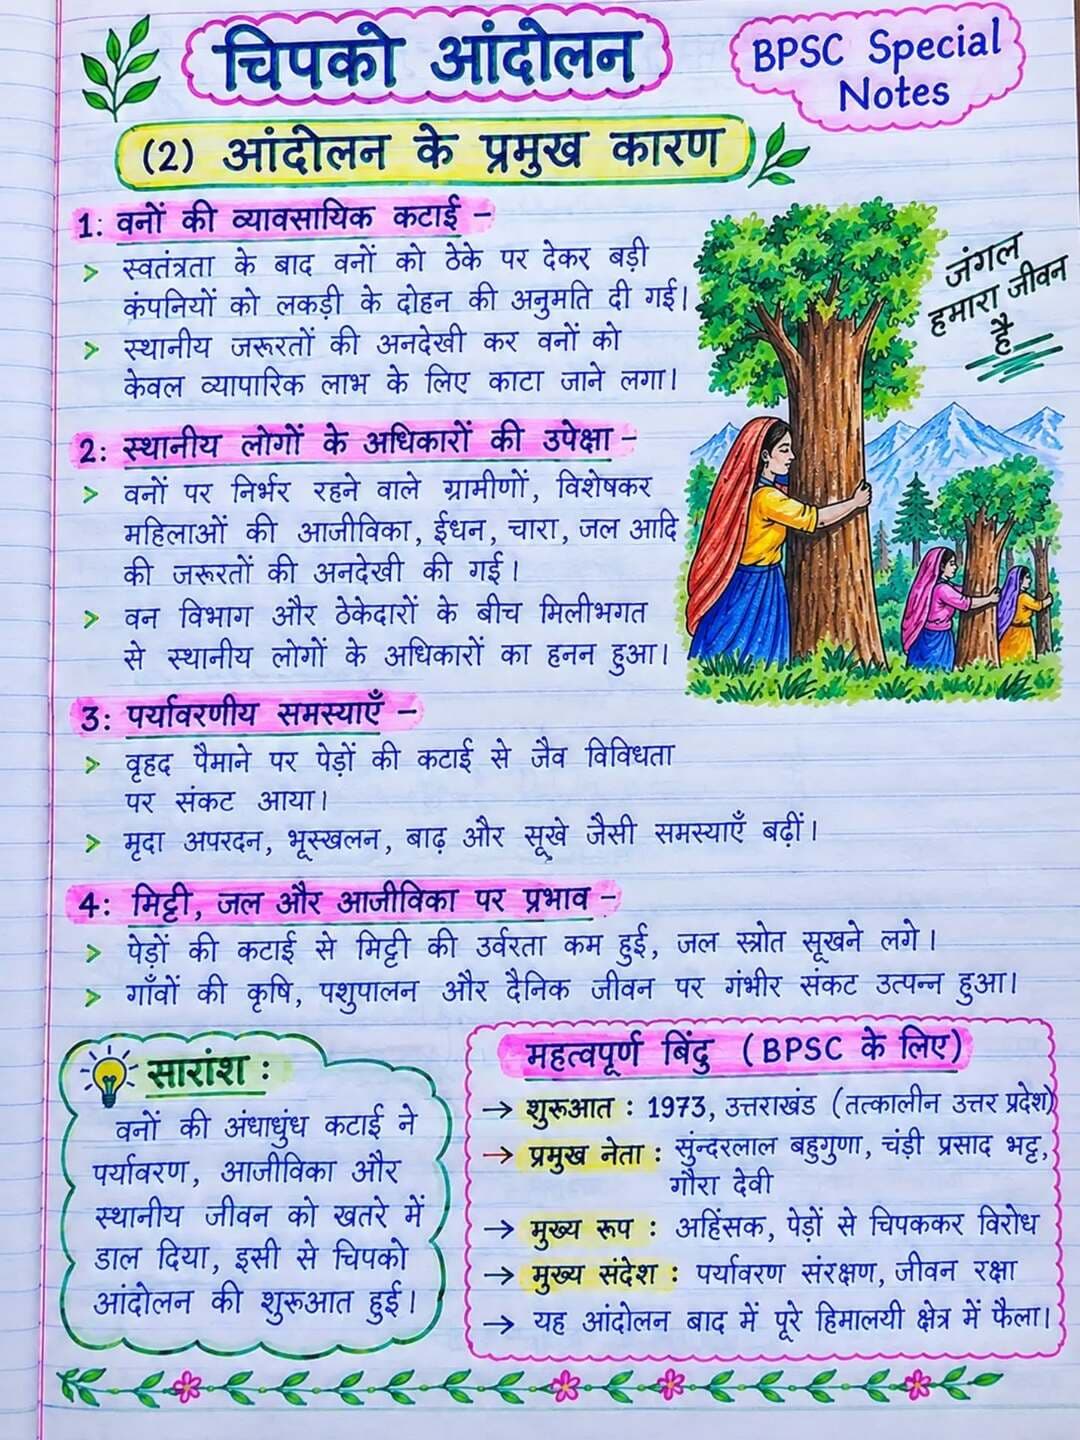 चिपको आंदोलन
BPSC Special
Notes
(2) आंदोलन के प्रमुख कारण
1: वनों की व्यावसायिक कटाई –
> स्वतंत्रता के बाद वनों को ठेके पर देकर बड़ी
कंपनियों को लकड़ी के दोहन की अनुमति दी गई।
> स्थानीय जरूरतों की अनदेखी कर वनों को
केवल व्यापारिक लाभ के लिए काटा जाने लगा।
जंगल
हमारा जीवन
है
2: स्थानीय लोगों के अधिकारों की उपेक्षा –
> वनों पर निर्भर रहने वाले ग्रामीणों, विशेषकर
महिलाओं की आजीविका, ईधन, चारा, जल आदि
की जरूरतों की अनदेखी की गई।
> वन विभाग और ठेकेदारों के बीच मिलीभगत
से स्थानीय लोगों के अधिकारों का हनन हुआ।
3: पर्यावरणीय समस्याएँ –
> वृहद पैमाने पर पेड़ों की कटाई से जैव विविधता
पर संकट आया।
> मृदा अपरदन, भूस्खलन, बाढ़ और सूखे जैसी समस्याएँ बढ़ीं।
4: मिट्टी, जल और आजीविका पर प्रभाव –
> पेड़ों की कटाई से मिट्टी की उर्वरता कम हुई, जल स्त्रोत सूखने लगे।
> गाँवों की कृषि, पशुपालन और दैनिक जीवन पर गंभीर संकट उत्पन्न हुआ।
सारांश :
वनों की अंधाधुंध कटाई ने
पर्यावरण, आजीविका और
स्थानीय जीवन को खतरे में
डाल दिया, इसी से चिपको
आंदोलन की शुरूआत हुई।
महत्वपूर्ण बिंदु (BPSC के लिए)
→ शुरूआत : 1973, उत्तराखंड (तत्कालीन उत्तर प्रदेश)
→ प्रमुख नेता : सुंन्दरलाल बहुगुणा, चंड़ी प्रसाद भट्ट,
गौरा देवी
→ मुख्य रूप : अहिंसक, पेड़ों से चिपककर विरोध
→ मुख्य संदेश : पर्यावरण संरक्षण, जीवन रक्षा
→ यह आंदोलन बाद में पूरे हिमालयी क्षेत्र में फैला।